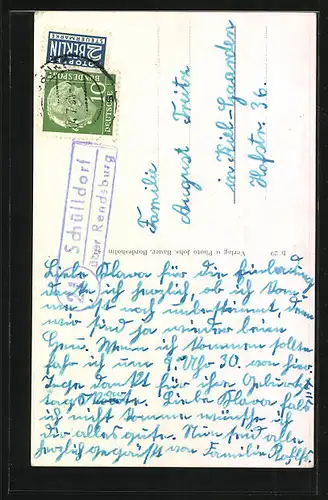 NOTOPFER
2 BERLIN
STEUERMARKE
DEUTSCHE
BUNDESPOST
10
Schülldorf
über Rendsburg
Familie
August Fritz
in Kiel-Gaarden
Hofstr. 36.
Verlag u Photo Johs. Bauer, Bordesholm
b 29
Liebe Klara für die Einladung
danke ich herzlich, ob ich kom
me ist noch unbestimmt, denn
wir sind ja wieder beim
Heu. Wenn ich kommen sollte
fahr ich um 9. Uhr 30. von hier.
Inge dankt für ihre Geburts
tags Karte. Liebe Klara falls
ich nicht komme wünsche ich
dir alles gute. Nun seid alle
herzlich gegrüßt von Familie Rohlfs.